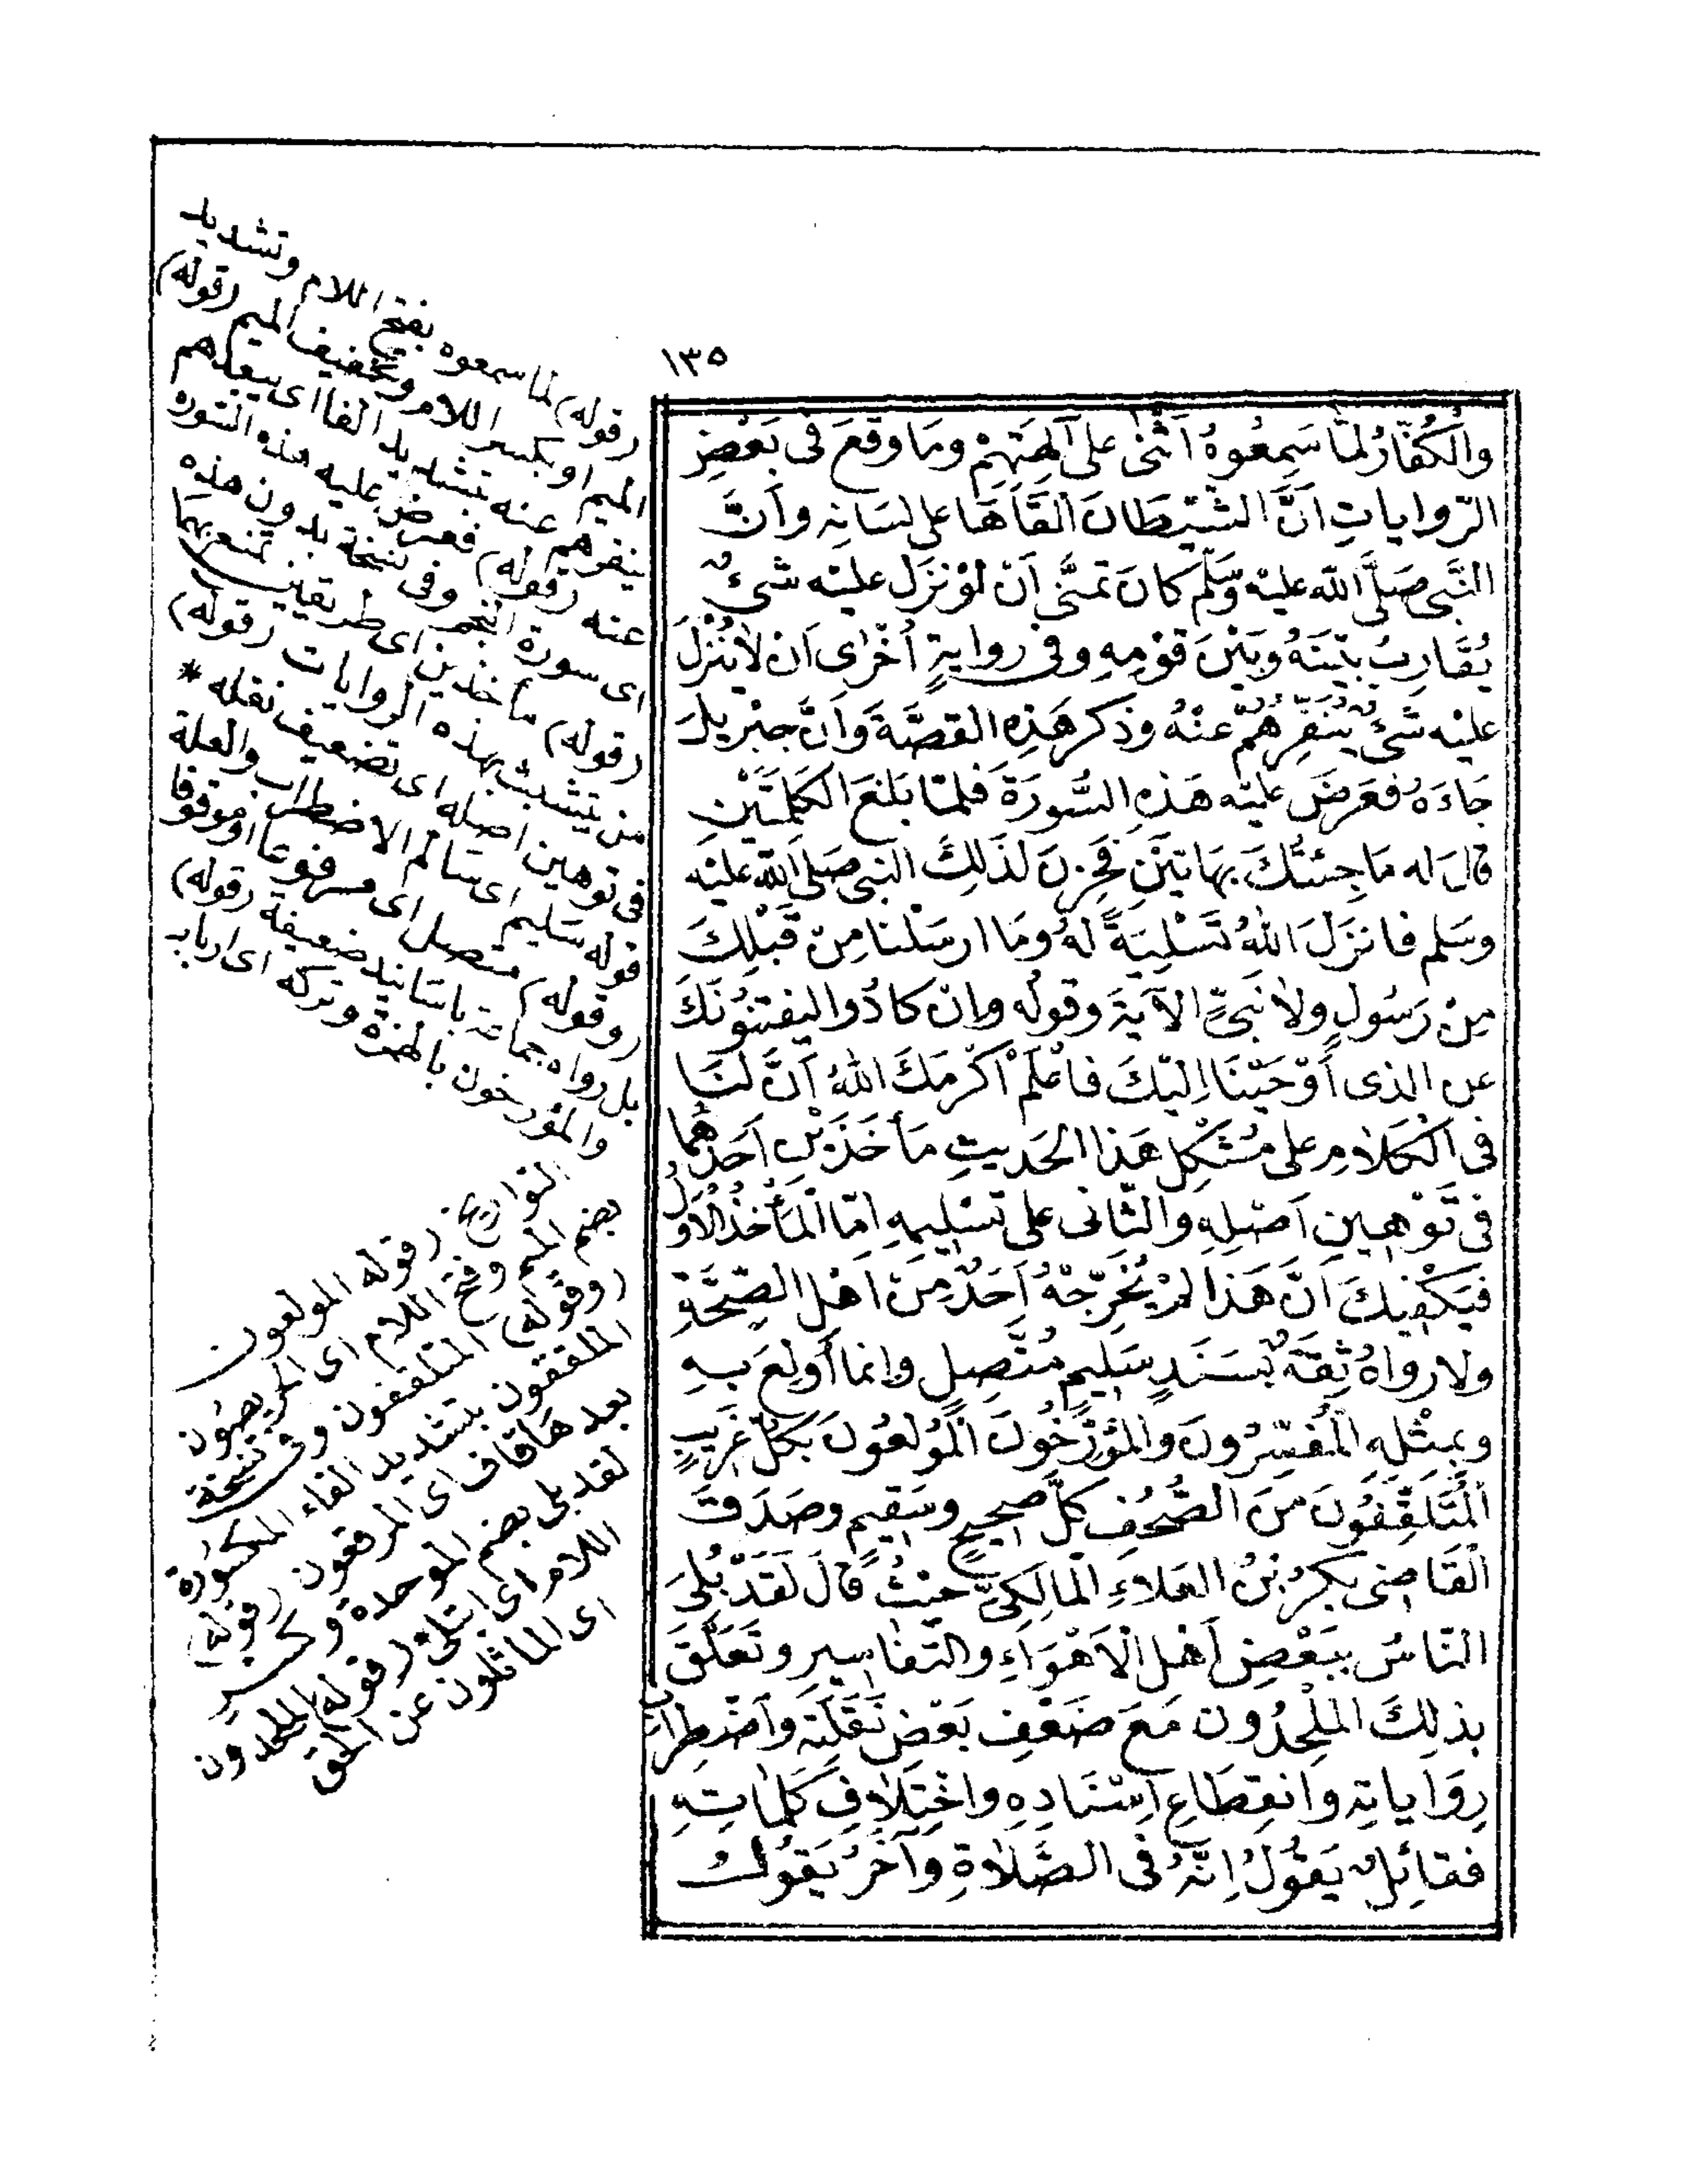 ١٣٥
وَالْكُفَّارُ لَمَّا سَمِعُوهُ اَثْنٰى عَلٰى آلِهَتِهِمْ وَمَا وَقَعَ فِى بَعْضِ
الرِّوايَاتِ اَنَّ الشَّيْطَانَ اَلْقَاهَا عَلٰى لِسَانِهِ وَاَنَّ
النَّبِىَّ صَلَّى اللهُ عَلَيْهِ وَسَلَّمَ كَانَ تَمَنَّى اَنْ لَوْ نَزَلَ عَلَيْهِ شَىْءٌ
يُقَارِبُ بَيْنَهُ وَبَيْنَ قَوْمِهِ وَفِى رِوايَةٍ اُخْرٰى اَنْ لَا يُنْزَلَ
عَلَيْهِ شَىْءٌ يُنَفِّرُهُمْ عَنْهُ وَذَكَرَ هَذِهِ الْقِصَّةَ وَاَنَّ جِبْرِيلَ
جَاءَهُ فَعَرَضَ عَلَيْهِ هَذِهِ السُّورَةَ فَلَمَّا بَلَغَ الْكَلِمَتَيْنِ
قَالَ لَهُ مَا جِئْتُكَ بِهَاتَيْنِ فَحَزِنَ لِذَلِكَ النَّبِىُّ صَلَّى اللهُ عَلَيْهِ
وَسَلَّمَ فَاَنْزَلَ اللهُ تَسْلِيَةً لَهُ وَمَا اَرْسَلْنَا مِنْ قَبْلِكَ
مِنْ رَسُولٍ وَلَا نَبِىٍّ الْآيَةَ وَقَوْلَهُ وَاِنْ كَادُوا لَيَفْتِنُونَكَ
عَنِ الَّذِى اَوْحَيْنَا اِلَيْكَ فَاعْلَمْ اَكْرَمَكَ اللهُ اَنَّ لَنَا
فِى الْكَلَامِ عَلَى مُشْكِلِ هَذَا الْحَدِيثِ مَأْخَذَيْنِ اَحَدُهُمَا
فِى تَوْهِينِ اَصْلِهِ وَالثَّانِى عَلَى تَسْلِيمِهِ اَمَّا الْمَأْخَذُ الْاَوَّلُ
فَيَكْفِيكَ اَنَّ هَذَا لَمْ يُخَرِّجْهُ اَحَدٌ مِنْ اَهْلِ الصِّحَّةِ
وَلَا رَوَاهُ ثِقَةٌ بِسَنَدٍ سَلِيمٍ مُتَّصِلٍ وَاِنَّمَا اُولِعَ بِهِ
وَبِمِثْلِهِ الْمُفَسِّرُونَ وَالْمُؤَرِّخُونَ الْمُولَعُونَ بِكُلِّ غَرِيبٍ
الْمُتَلَقِّفُونَ مِنَ الصُّحُفِ كُلَّ صَحِيحٍ وَسَقِيمٍ وَصَدَقَ
الْقَاضِى بَكْرُ بْنُ الْعَلَاءِ الْمَالِكِىُّ حَيْثُ قَالَ لَقَدْ بُلِىَ
النَّاسُ بِبَعْضِ اَهْلِ الْاَهْوَاءِ وَالتَّفَاسِيرِ وَتَعَلَّقَ
بِذَلِكَ الْمُلْحِدُونَ مَعَ ضَعْفِ بَعْضِ نَقَلَتِهِ وَاضْطِرَابِ
رِوَايَاتِهِ وَانْقِطَاعِ اِسْنَادِهِ وَاخْتِلَافِ كَلِمَاتِهِ
فَقَائِلٌ يَقُولُ اِنَّهُ فِى الصَّلَاةِ وَآخَرُ يَقُولُ
(قوله) لما سمعوه بفتح اللام وتشديد
الميم او بكسر اللام وتخفيف الميم (قوله)
ينفرهم عنه بتشديد الفا اى يبعدهم
عنه (قوله) فعرض عليه هذه السوره
اى سورة النجم وفى نسخة بدون هذه
(قوله) مأخذين اى طريقين تمنع بهما
من يتشبث بهذه الروايات (قوله)
فى توهين اصله اى تضعيف نقله *
قوله سليم اى سالم الاضطراب والعلة
(وقوله) متصل اى مرفوعا او موقوفا
بل رواه جماعة باسانيد ضعيفة (قوله)
والمؤرخون بالهمزة وتركه اى ارباب
التواريخ (قوله المولعون
بضم الميم وفتح اللام اى الحريصون
(وقوله) المتلقفون وفى نسخة
الملفقون بتشديد الفاء المكسورة
بعدها قاف اى المرقعون (قوله)
لقد بلى بضم الموحدة وكسر
اللام اى ابتلى (قوله) الملحدون
اى المائلون عن الحق